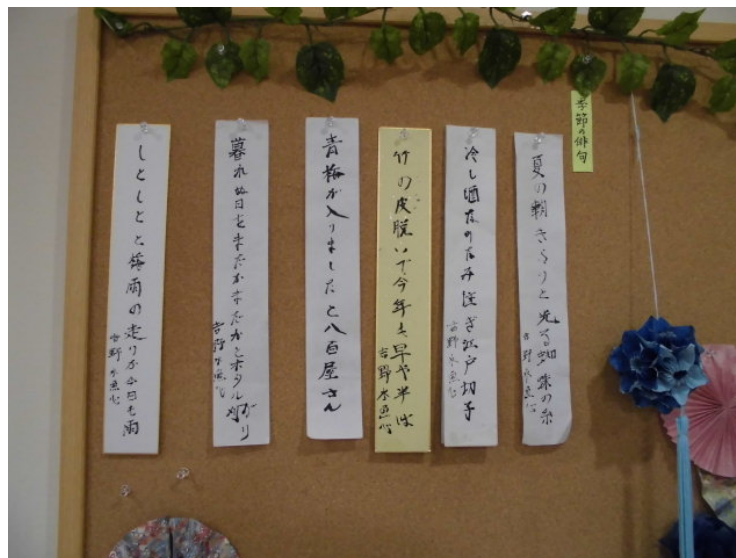 季節の俳句
夏の朝きらりと光る蜘蛛の糸
吉野
冷し酒なみなみ注ぎ江戸切子
吉野
竹の皮脱いで今年も早や半ば
吉野
青梅が入りましたと八百屋さん
暮れぬ日をまだかまだかとホタル
吉野
しとしとと梅雨の走りか今日も雨
吉野